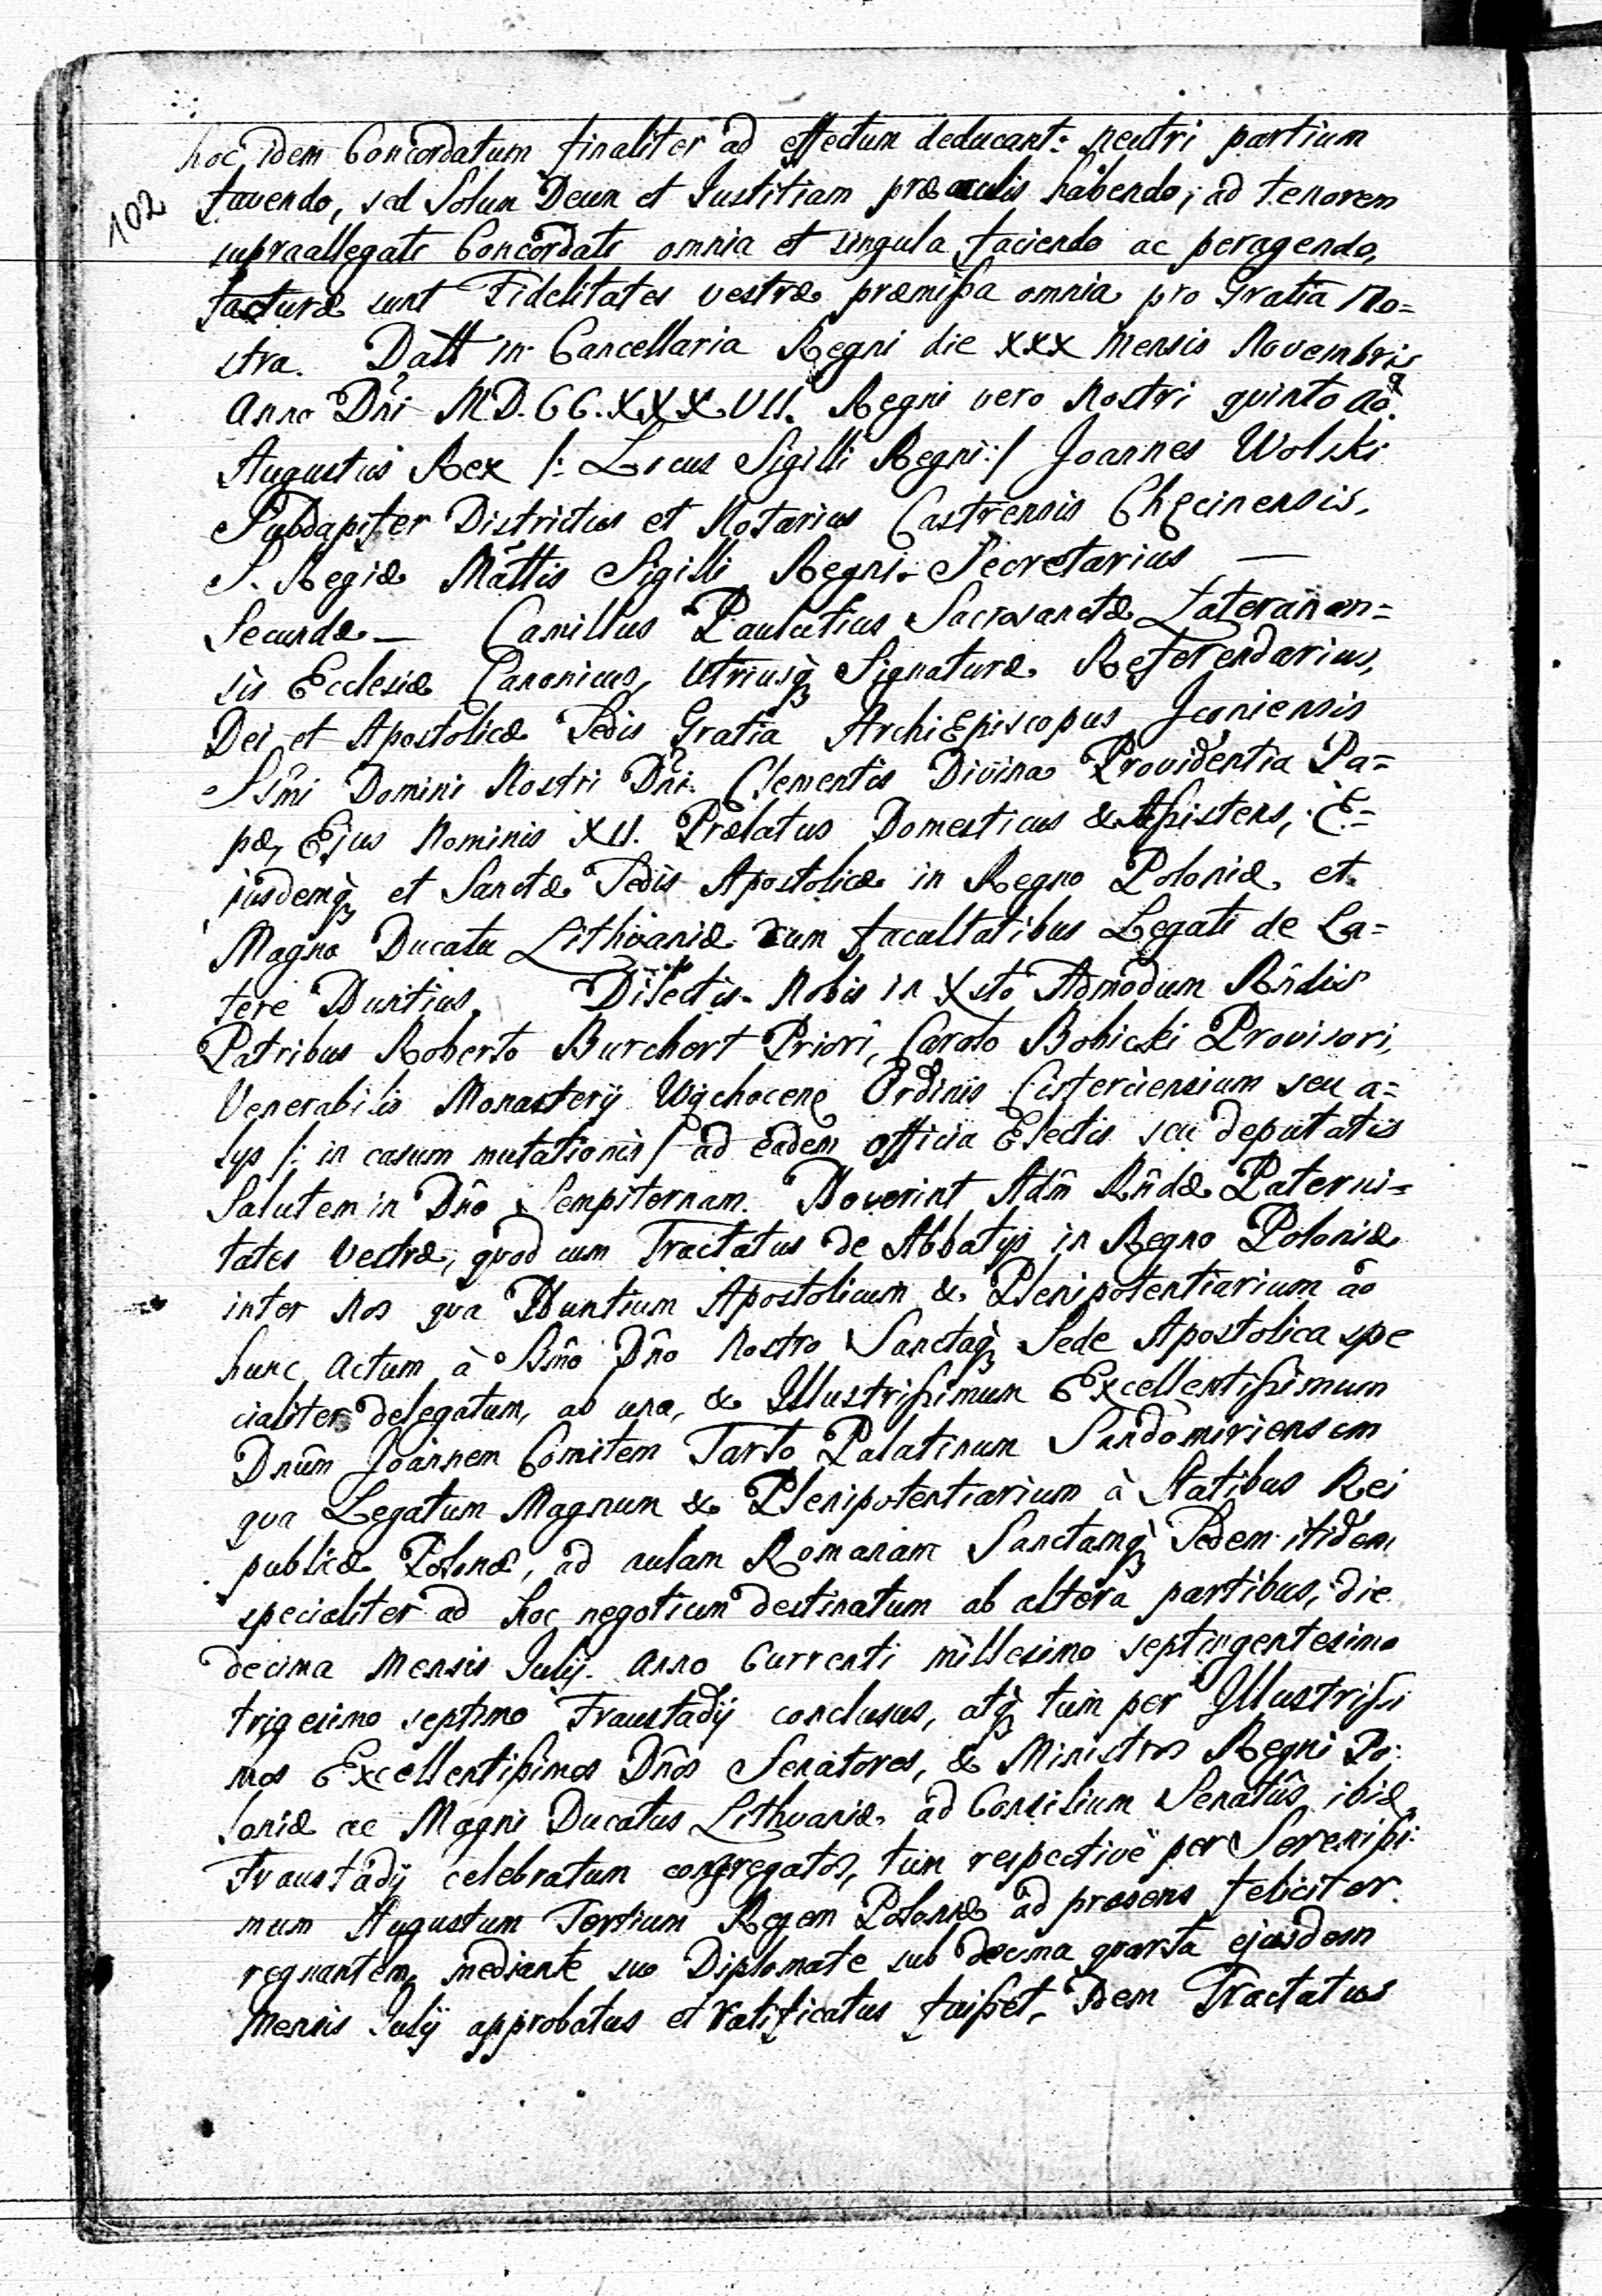 hoc idem Concordatum finaliter ad effectum deducant: neutri partium
102
favendo, sed Solum Deum et Iustitiam præ oculis habendo, ad tenorem
supraallegati Concordati omnia et singula faciendo ac peragendo,
facturæ sunt Fidelitates vestræ præmißa omnia pro Gratia No=
stra. Datt in Cancellaria Regni die XXX Mensis Novembris
Anno Dñi MD.CC.XXXVII. Regni vero Nostri quinto aõ.
Augustus Rex /: Locus Sigilli Regni :/ Joannes Wolski
Subdapifer Districtus et Notarius Castrensis Chęcinensis,
S. Regiæ Mattis Sigilli Regni Secretarius —
Secundæ — Camillus Paulutius Sacrosanctæ Lateranen=
sis Ecclesiæ Canonicus, Utriusq̃ Signaturæ Referendarius,
Dei et Apostolicæ Sedis Gratia ArchiEpiscopus Iconiensis
SSm̃i Domini Nostri Dñi Clementis Divina Providentia Pa=
pæ, Ejus Nominis XII. Prælatus Domesticus & Aßistens, E=
jusdemq̃ et Sanctæ Sedis Apostolicæ in Regno Poloniæ, et
Magno Ducatu Lithvaniæ cum facultatibus Legati de La=
tere Nuntius. Dilectis Nobis in Xsto Admodum Rñdis
Patribus Roberto Burchert Priori, Carolo Bobicki Provisori,
Venerabilis Monasterij Wąchocenę Ordinis Cisterciensium seu a=
lys /: in casum mutationis / ad eadem officia Electis seu deputatis
Salutem in Dño Sempiternam. Noverint Adm̃ Rñdæ Paterni=
tates Vestræ, quod cum Tractatus de Abbatijs in Regno Poloniæ
inter Nos qua Nuntium Apostolicum & Plenipotentiarium ad
hunc actum à Bm̃o Dño Nostro Sanctaq̃ Sede Apostolica spe
cialiter delegatum, ab una, & Illustrißimum Excellentißimum
Dnũm Joannem Comitem Tarło Palatinum Sandomiriensem
qua Legatum Magnum & Plenipotentiarium à Statibus Rei
publicæ Polonæ, ad aulam Romanam Sanctamq̃ Sedem itidem
specialiter ad hoc negotium destinatum ab altera partibus, die
decima Mensis Julij Anno Currenti millesimo septingentesimo
trigesimo septimo Fraustadij conclusus, atq̃ tum per Illustrißi
mos Excellentißimos Dños Senatores, & Ministros Regni Po:
loniæ ac Magni Ducatus Lithvaniæ, ad Consilium Senatûs ibid.
Fraustadij celebratum congregatos, tum respective per Serenißi:
mum Augustum Tertium Regem Poloniæ ad præsens feliciter
regnantem, mediante suo Diplomate sub decima quarta ejusdem
Mensis Julij approbatus et ratificatus fuißet, Idem Tractatus